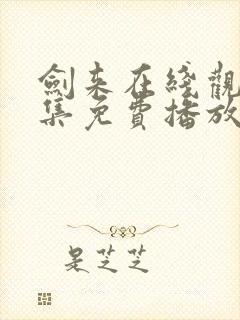 劍来在綫觀
集免費播放
是芝芝